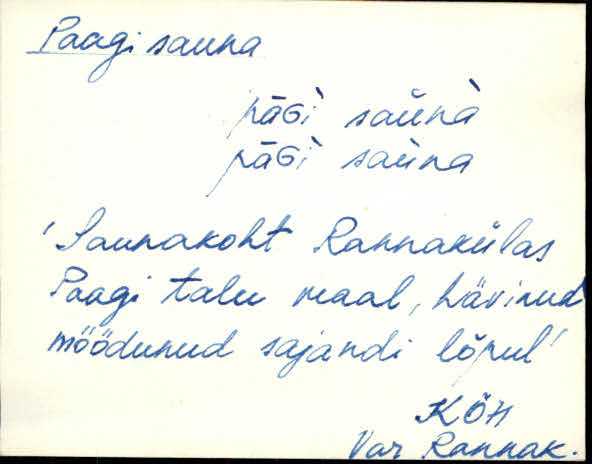 Paagi sauna
pāGì saūnà
pāGì saūna
'Saunakoht Rannakülas
Paagi talu maal, hävinud
möödunud sajandi lõpul'
KÕH
Var Rannak.